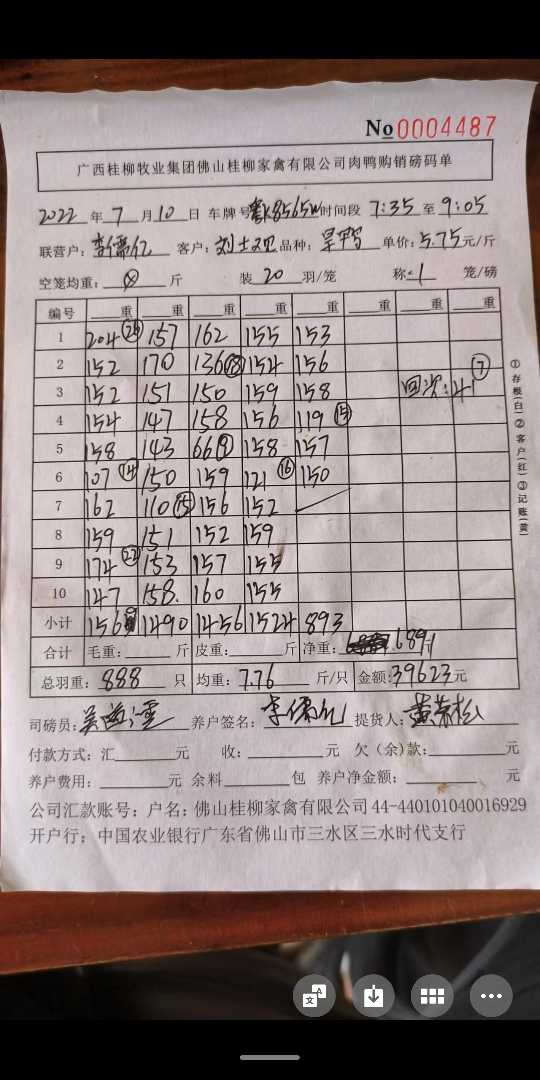 No 0004487
广西桂柳牧业集团佛山桂柳家禽有限公司肉鸭购销磅码单
2022 年 7 月 10 日 车牌号 K8565W 时间段 7:35 至 9:05
联营户: 客户: 品种: 单价: 5.75 元/斤
空笼均重: 斤 装 20 羽/笼 称 1 笼/磅
编号 重 重 重 重 重 重 重 重
1 204 157 162 155 153
2 152 170 136 ⑱ 154 156
3 152 151 150 159 158 41 ⑦
4 154 147 158 156 119 ⑮
5 158 143 66 158 157
6 107 ⑭ 150 159 121 ⑯ 150
7 162 110 ⑮ 156 152
8 159 151 152 159
9 174 ㉒ 153 157 155
10 147 158. 160 155
小计 1569 1490 1456 1524 893
合计 毛重: 斤 皮重: 斤 净重: 6891
总羽重: 888 只 均重: 7.76 斤/只 金额: 39623 元
司磅员: 养户签名: 提货人:
付款方式: 汇 元 收: 元 欠(余)款: 元
养户费用: 元 余料 包 养户净金额: 元
公司汇款账号: 户名: 佛山桂柳家禽有限公司 44-440101040016929
开户行: 中国农业银行广东省佛山市三水区三水时代支行
①存根(白)②客户(红)③记账(黄)